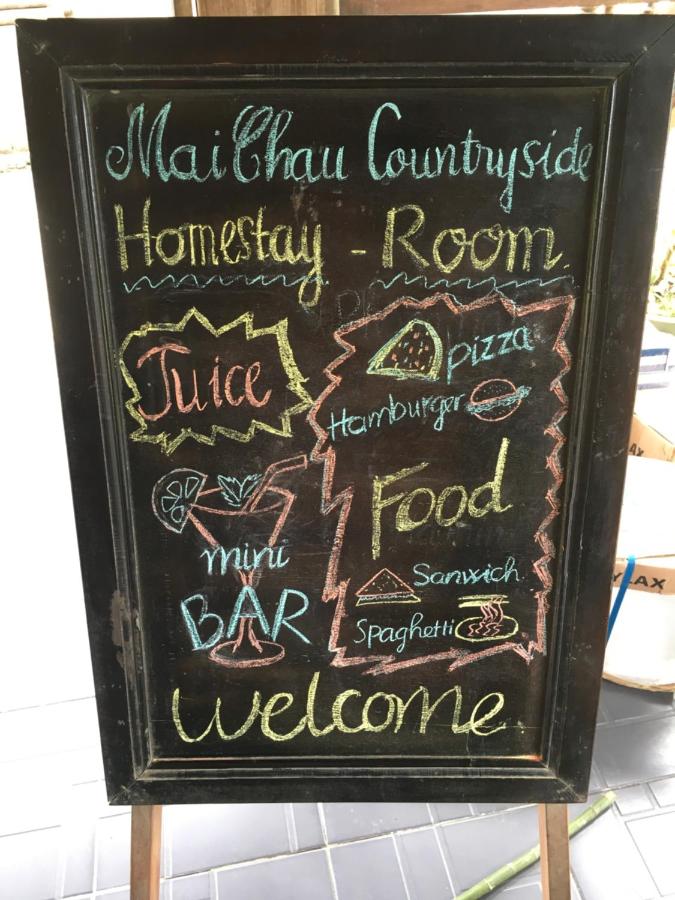 Mai Chau Countryside
Homestay - Room
Juice
pizza
Hamburger
Food
Sanwich
Spaghetti
mini
BAR
Welcome